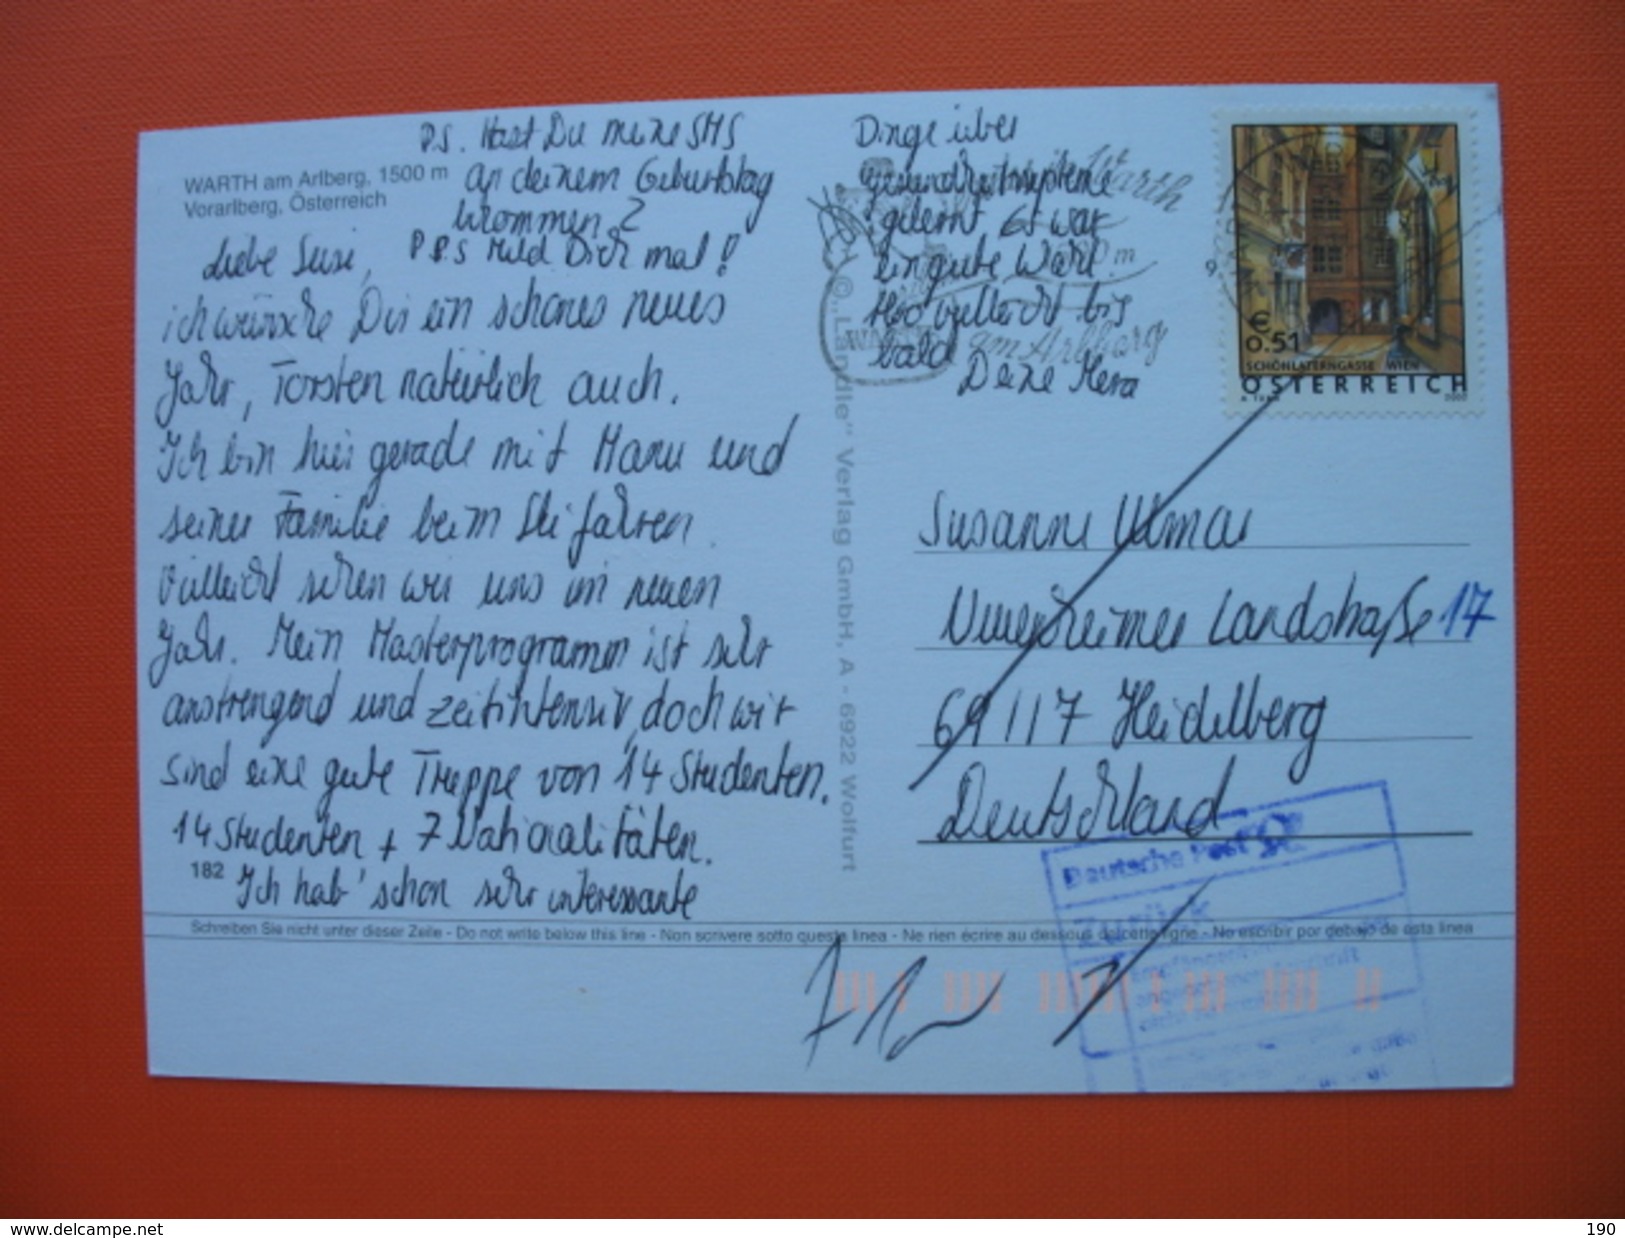 WARTH am Arlberg, 1500 m
Vorarlberg, Österreich
P.S. Hast Du meine SMS
an deinem Geburtstag
bekommen?
P.P.S Meld Dich mal!
Liebe Susi,
ich wünsche Dir ein schönes neues
Jahr, Torsten natürlich auch.
Ich bin hier gerade mit Manu und
seiner Familie beim Ski fahren.
Vielleicht sehen wir uns im neuen
Jahr. Mein Masterprogramm ist sehr
anstrengend und zeitintensiv, doch wir
sind eine gute Truppe von 14 Studenten.
14 Studenten + 7 Nationalitäten.
182
Ich hab' schon sehr interessante
Dinge über
Gesundheitssysteme
gelernt. Es war
ein gute Wahl.
Also vielleicht bis
bald
Deine
Warth
am Arlberg
WARTH
© "Ländle" Verlag GmbH, A - 6922 Wolfurt
€
0.51
SCHÖNLATERNGASSE WIEN
ÖSTERREICH
2002
Susanne
Landstraße 17
69117 Heidelberg
Deutschland
Deutsche Post
Zurück
Schreiben Sie nicht unter dieser Zeile - Do not write below this line - Non scrivere sotto questa linea - Ne rien écrire au dessous de cette ligne - No escribir por debajo de esta linea
www.delcampe.net
190